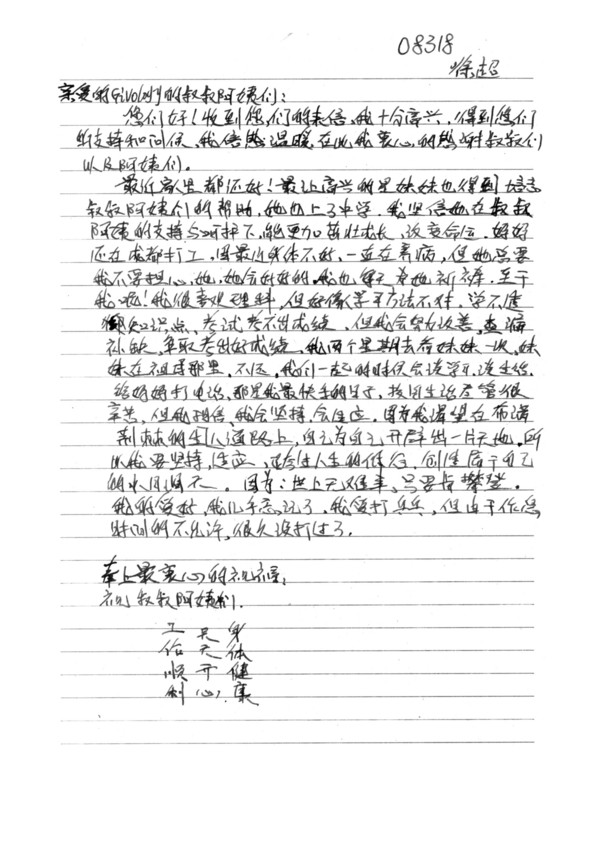 08318
徐超
亲爱的Givology的叔叔阿姨们：
您们好！收到您们的来信，我十分高兴，得到您们
的支持和问候，我倍感温暖，在此我衷心的感谢叔叔们
以及阿姨们。
最近家里都还好！最让高兴的是妹妹也得到
叔叔阿姨们的帮助，她也上了中学。我坚信她在叔叔
阿姨的支持与呵护下，能更加茁壮成长，改变命运。妈妈
还在成都打工，因最近身体不好，一直在看病，但她总要
我不要担心她，她会好好的，我也每天为她祈祷。至于
我呢！我很喜欢理科，但好像学习方法不对，学不懂
知识点，考试考不出成绩，但我会努力改善，查漏
补缺，争取考出好成绩。我两个星期去看妹妹一次，妹
妹在祖母那里，不远，我们一起的时候会谈学习、谈生活，
给妈妈打电话，那是我最快乐的日子，校园生活尽管很
辛苦，但我相信，我会坚持，会适应。因为我渴望在布满
荆棘的人生道路上，自己为自己开辟出一片天地。所
以我要坚持，适应，人生的，创造属于自己
的水阔闻天。因为：世上无难事，只要肯攀登。
我的爱好，我几乎忘记了，我爱打乒乓，但由于作息
时间的不允许，很久没打过了。
奉上最衷心的祝福，
祝叔叔阿姨们：
工 天 身
作 天 体
顺 开 健
利 心 康